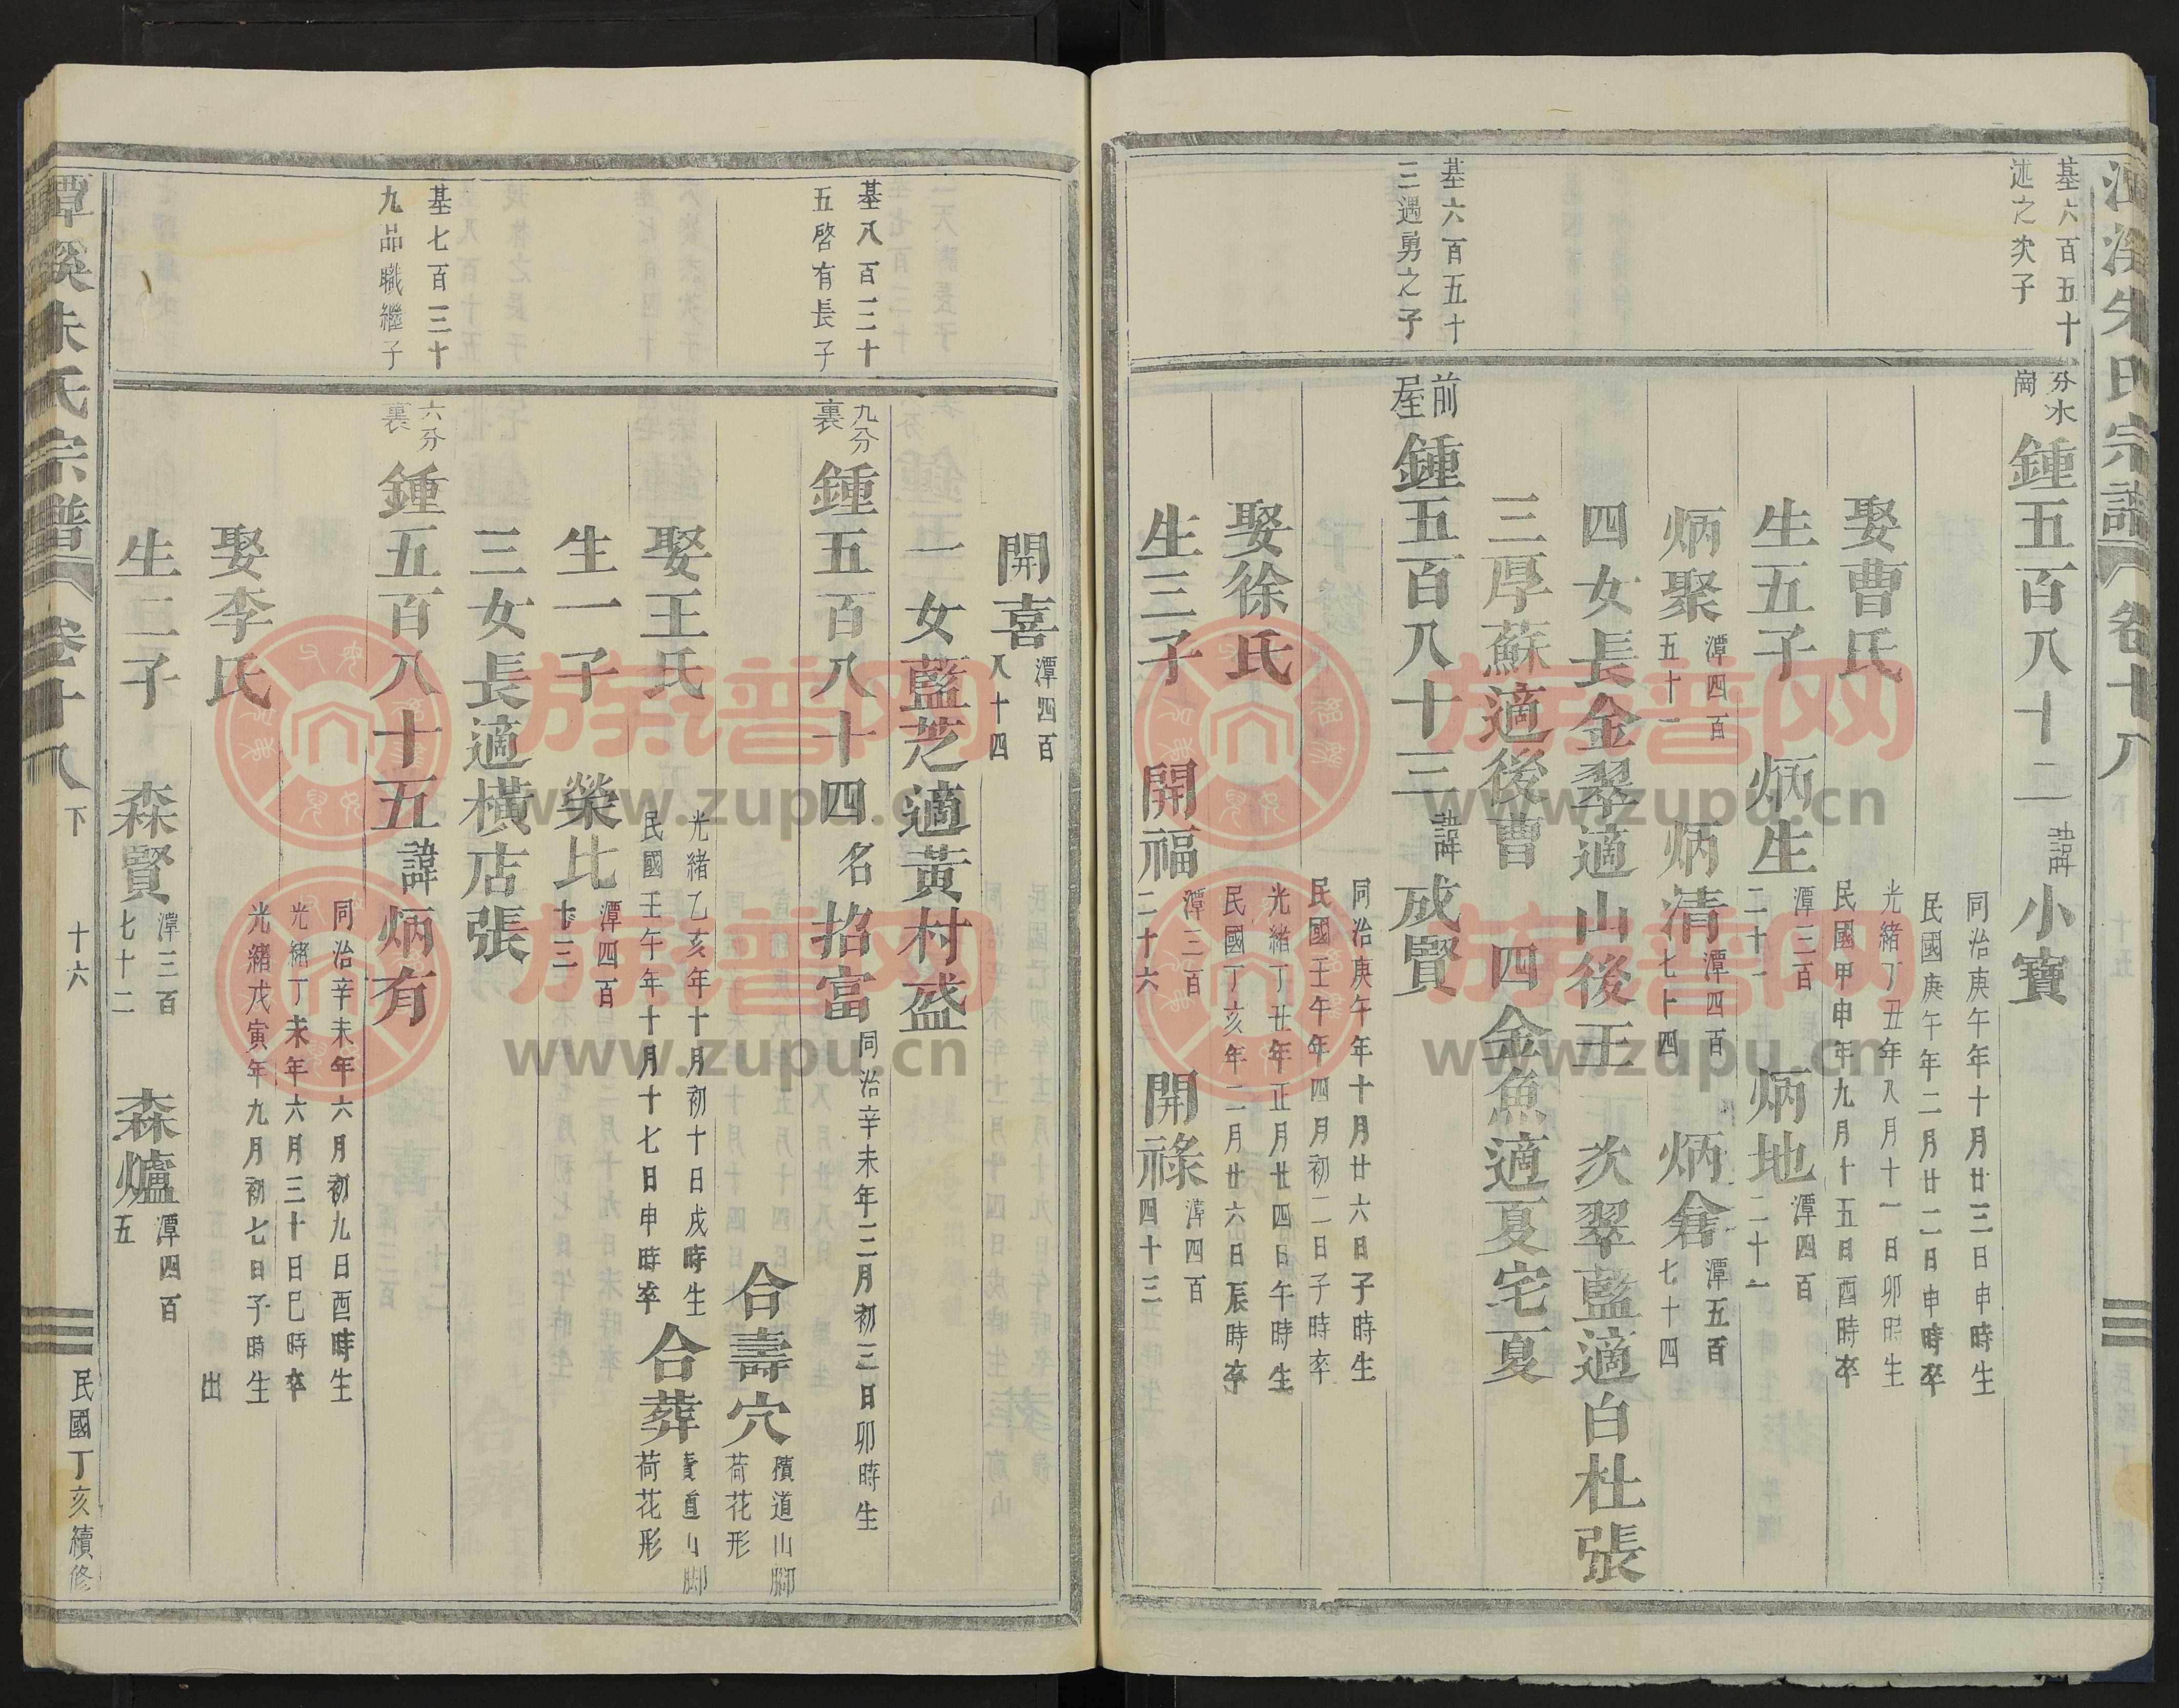 朱氏宗譜
卷十八
基六百五十
述之次子
分水
崗
鍾五百八十二諱小寶
同治庚午年十月廿三日申時生
民國庚午年二月廿二日申時卒
娶曹氏
光緒丁丑年八月十一日卯時生
民國甲申年九月十五日酉時卒
生五子
炳生
潭三百
二十一
炳地
潭四百
二十一
炳聚
潭四百
五十一
炳清
潭四百
七十四
炳倉
潭五百
七十四
四女長金翠適山後王
次翠藍適白杜張
三厚蘇適後曹
四金魚適夏宅夏
基六百五十
三遇勇之子
前
屋
鍾五百八十三諱成賢
同治庚午年十月廿六日子時生
民國壬午年四月初二日子時卒
娶徐氏
光緒丁丑年正月廿四日午時生
民國丁亥年二月廿六日辰時卒
生三子
開福
潭三百
二十六
開祿
潭四百
四十三
開喜
潭四百
八十四
一女藍芝適黃村盛
基八百三十
五啓有長子
九分
裏
鍾五百八十四名招富
同治辛未年三月初三日卯時生
合壽穴
積道山腳
荷花形
娶王氏
光緒乙亥年十月初十日戌時生
民國壬午年十月十七日申時卒
合葬
道山腳
荷花形
生一子
榮比
潭四百
十三
三女長適橫店張
基七百三十
九品職繼子
六分
裏
鍾五百八十五諱炳有
同治辛未年六月初九日酉時生
光緒丁未年六月三十日巳時卒
娶李氏
光緒戊寅年九月初七日子時生
出
生二子
森賢
潭三百
七十二
森爐
潭四百
五
潭溪朱氏宗譜
卷十八
下
十六
民國丁亥續修
族谱网
www.zupu.cn
族谱网
www.zupu.cn
族谱网
www.zupu.cn
族谱网
www.zupu.cn